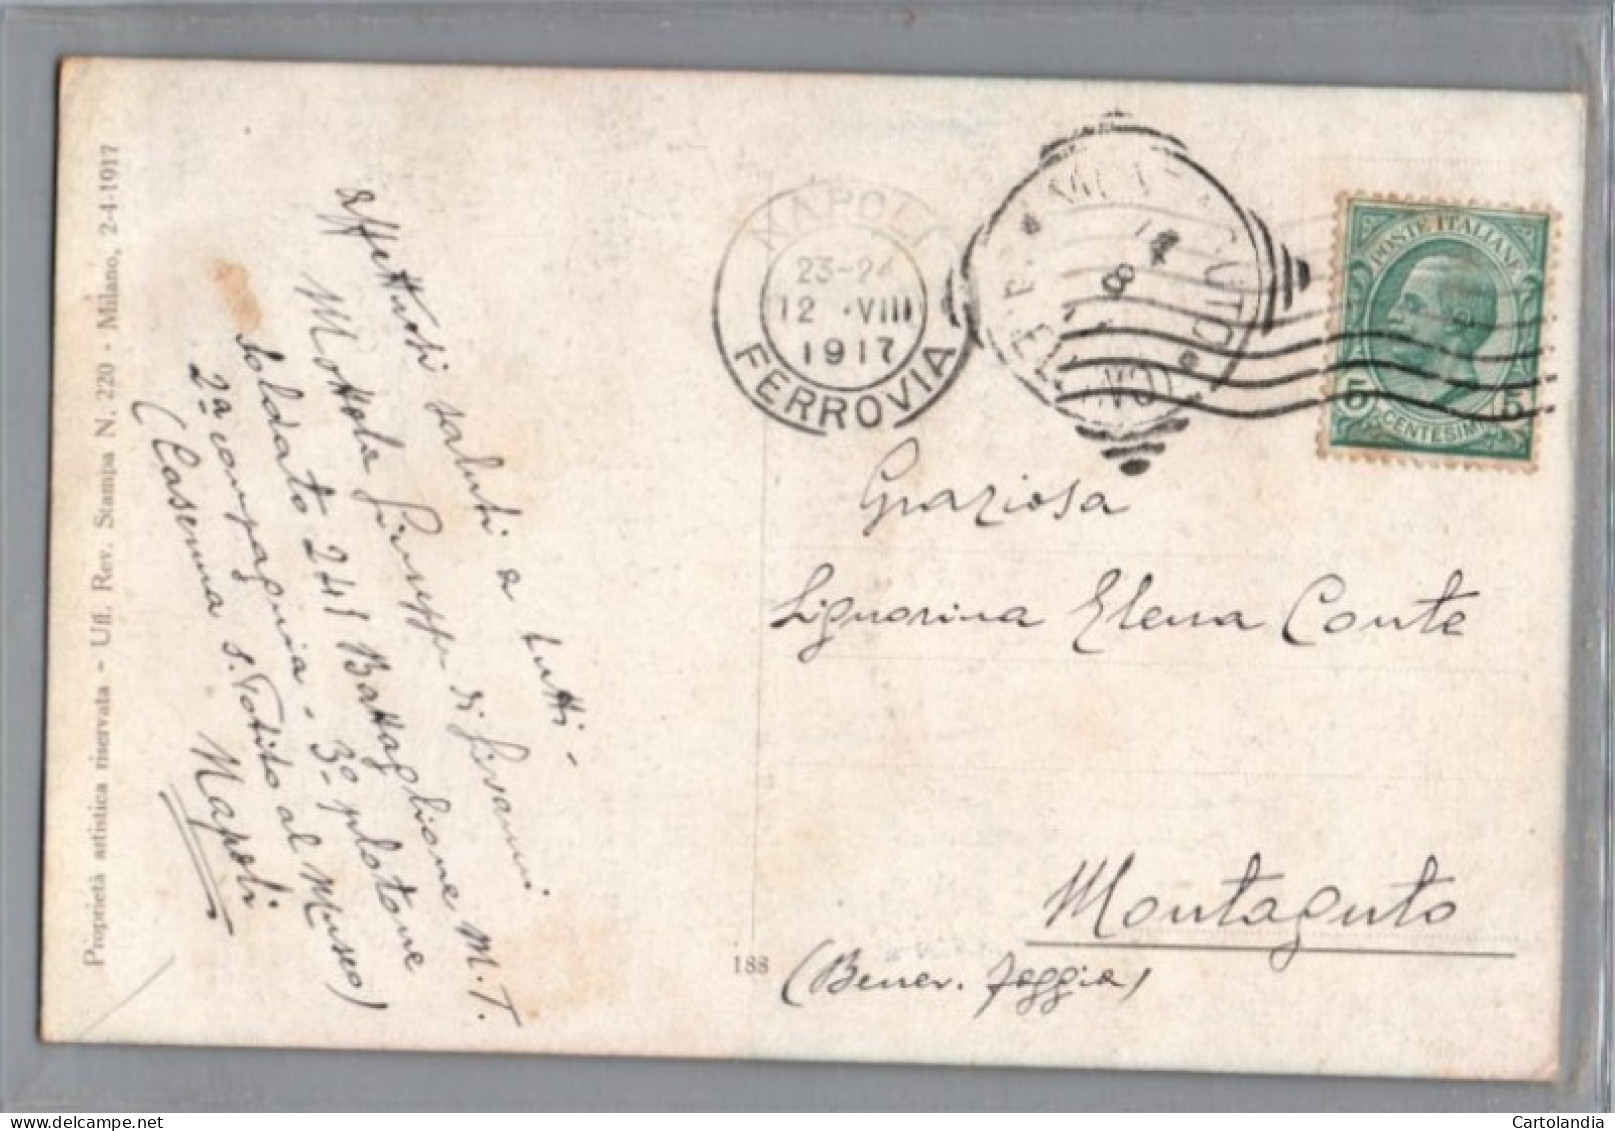 Proprietà artistica riservata - Uff. Rev. Stampa N. 220 - Milano, 2-4-1917
affettuosi saluti a tutti -
Mottola Giuseppe di Giovanni
soldato 241 Battaglione M.T.
2ª compagnia - 3º plotone
(Caserma S. Potito al Museo)
Napoli
188
NAPOLI
23-24
12 .VIII
1917
FERROVIA
14
8
POSTE ITALIANE
5 CENTESIMI 5
Graziosa
Signorina Elena Conte
Montaguto
(Benev. Foggia)
www.delcampe.net
Cartolandia